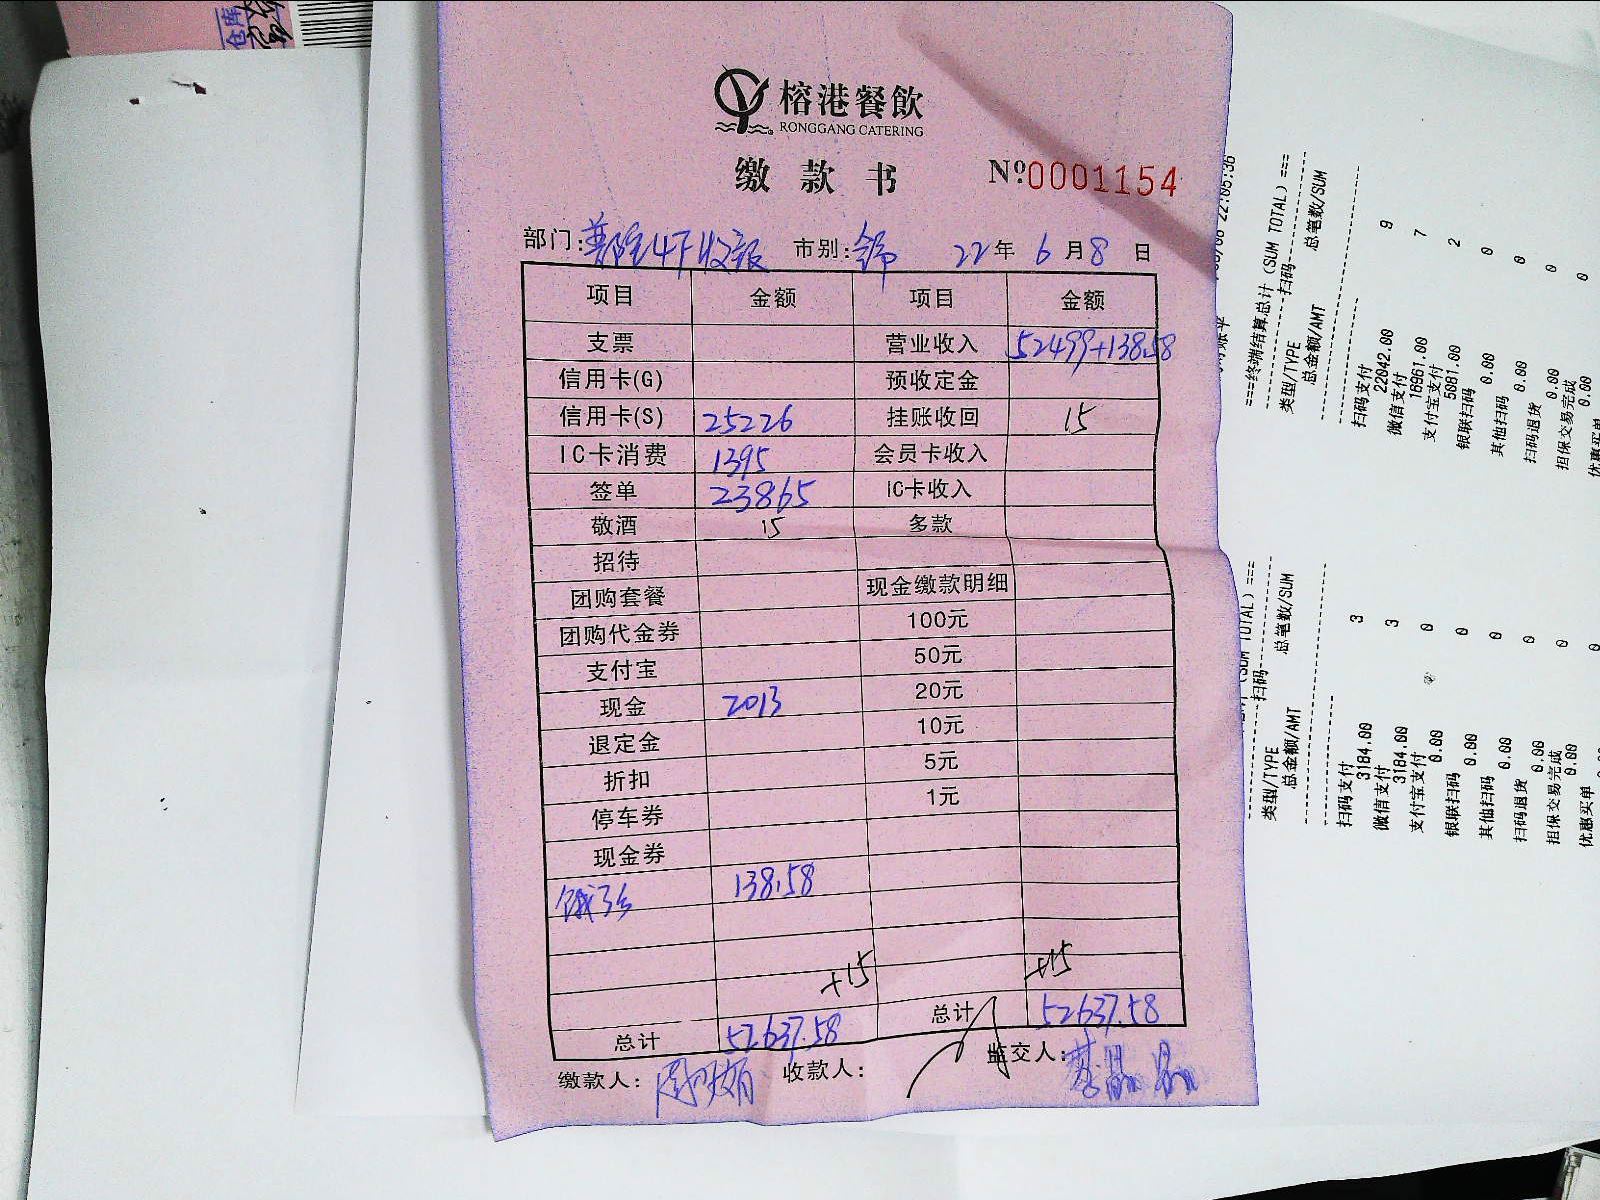 仓库
榕港餐飲
RONGGANG CATERING
缴款书
№0001154
部门: 4F收银 市别: 22年6月8日
项目 金额 项目 金额
支票 营业收入 52499+138.58
信用卡(G) 预收定金
信用卡(S) 25226 挂账收回 15
IC卡消费 1395 会员卡收入
签单 23865 IC卡收入
敬酒 15 多款
招待
团购套餐 现金缴款明细
团购代金券 100元
支付宝 50元
现金 2013 20元
退定金 10元
折扣 5元
停车券 1元
现金券
饿了么 138.58
+15 +15
总计 52637.58 总计 52637.58
缴款人: 收款人: 监交人:
22:05:36
===终端结算总计 (SUM TOTAL) ===
扫码
类型/TYPE 总笔数/SUM
总金额/AMT
扫码支付 9
22042.00
微信支付 7
16961.00
支付宝支付 2
5081.00
银联扫码 0
0.00
其他扫码 0
0.00
扫码退货 0
0.00
担保交易完成 0
0.00
优惠买单
(SUM TOTAL) ===
扫码
类型/TYPE 总笔数/SUM
总金额/AMT
扫码支付 3
3184.00
微信支付 3
3184.00
支付宝支付 0
0.00
银联扫码 0
0.00
其他扫码 0
0.00
扫码退货 0
0.00
担保交易完成 0
0.00
优惠买单 0